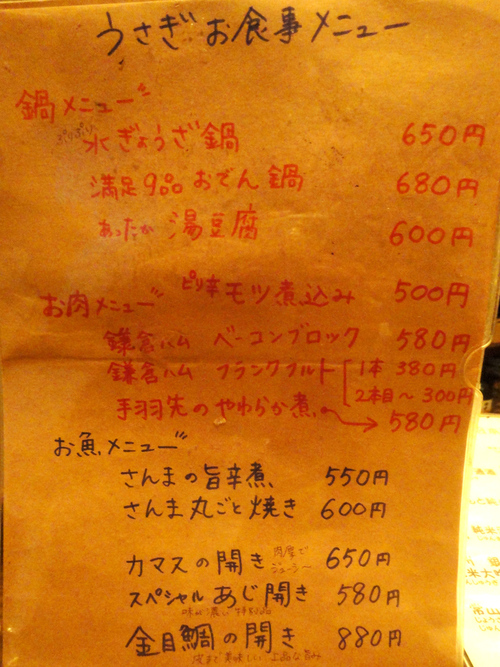 うさぎ お食事メニュー
鍋メニュー
ぷりぷり 水ぎょうざ鍋 650円
満足9品おでん鍋 680円
あったか 湯豆腐 600円
お肉メニュー
ピリ辛モツ煮込み 500円
鎌倉ハム ベーコンブロック 580円
鎌倉ハム フランクフルト 1本 380円
2本目〜300円
手羽先のやわらか煮 580円
お魚メニュー
さんまの旨辛煮 550円
さんま丸ごと焼き 600円
カマスの開き 肉厚で ジューシー 650円
スペシャルあじ開き 580円
味が濃い 特別品
金目鯛の開き 880円
皮まで美味しい 上品な旨み